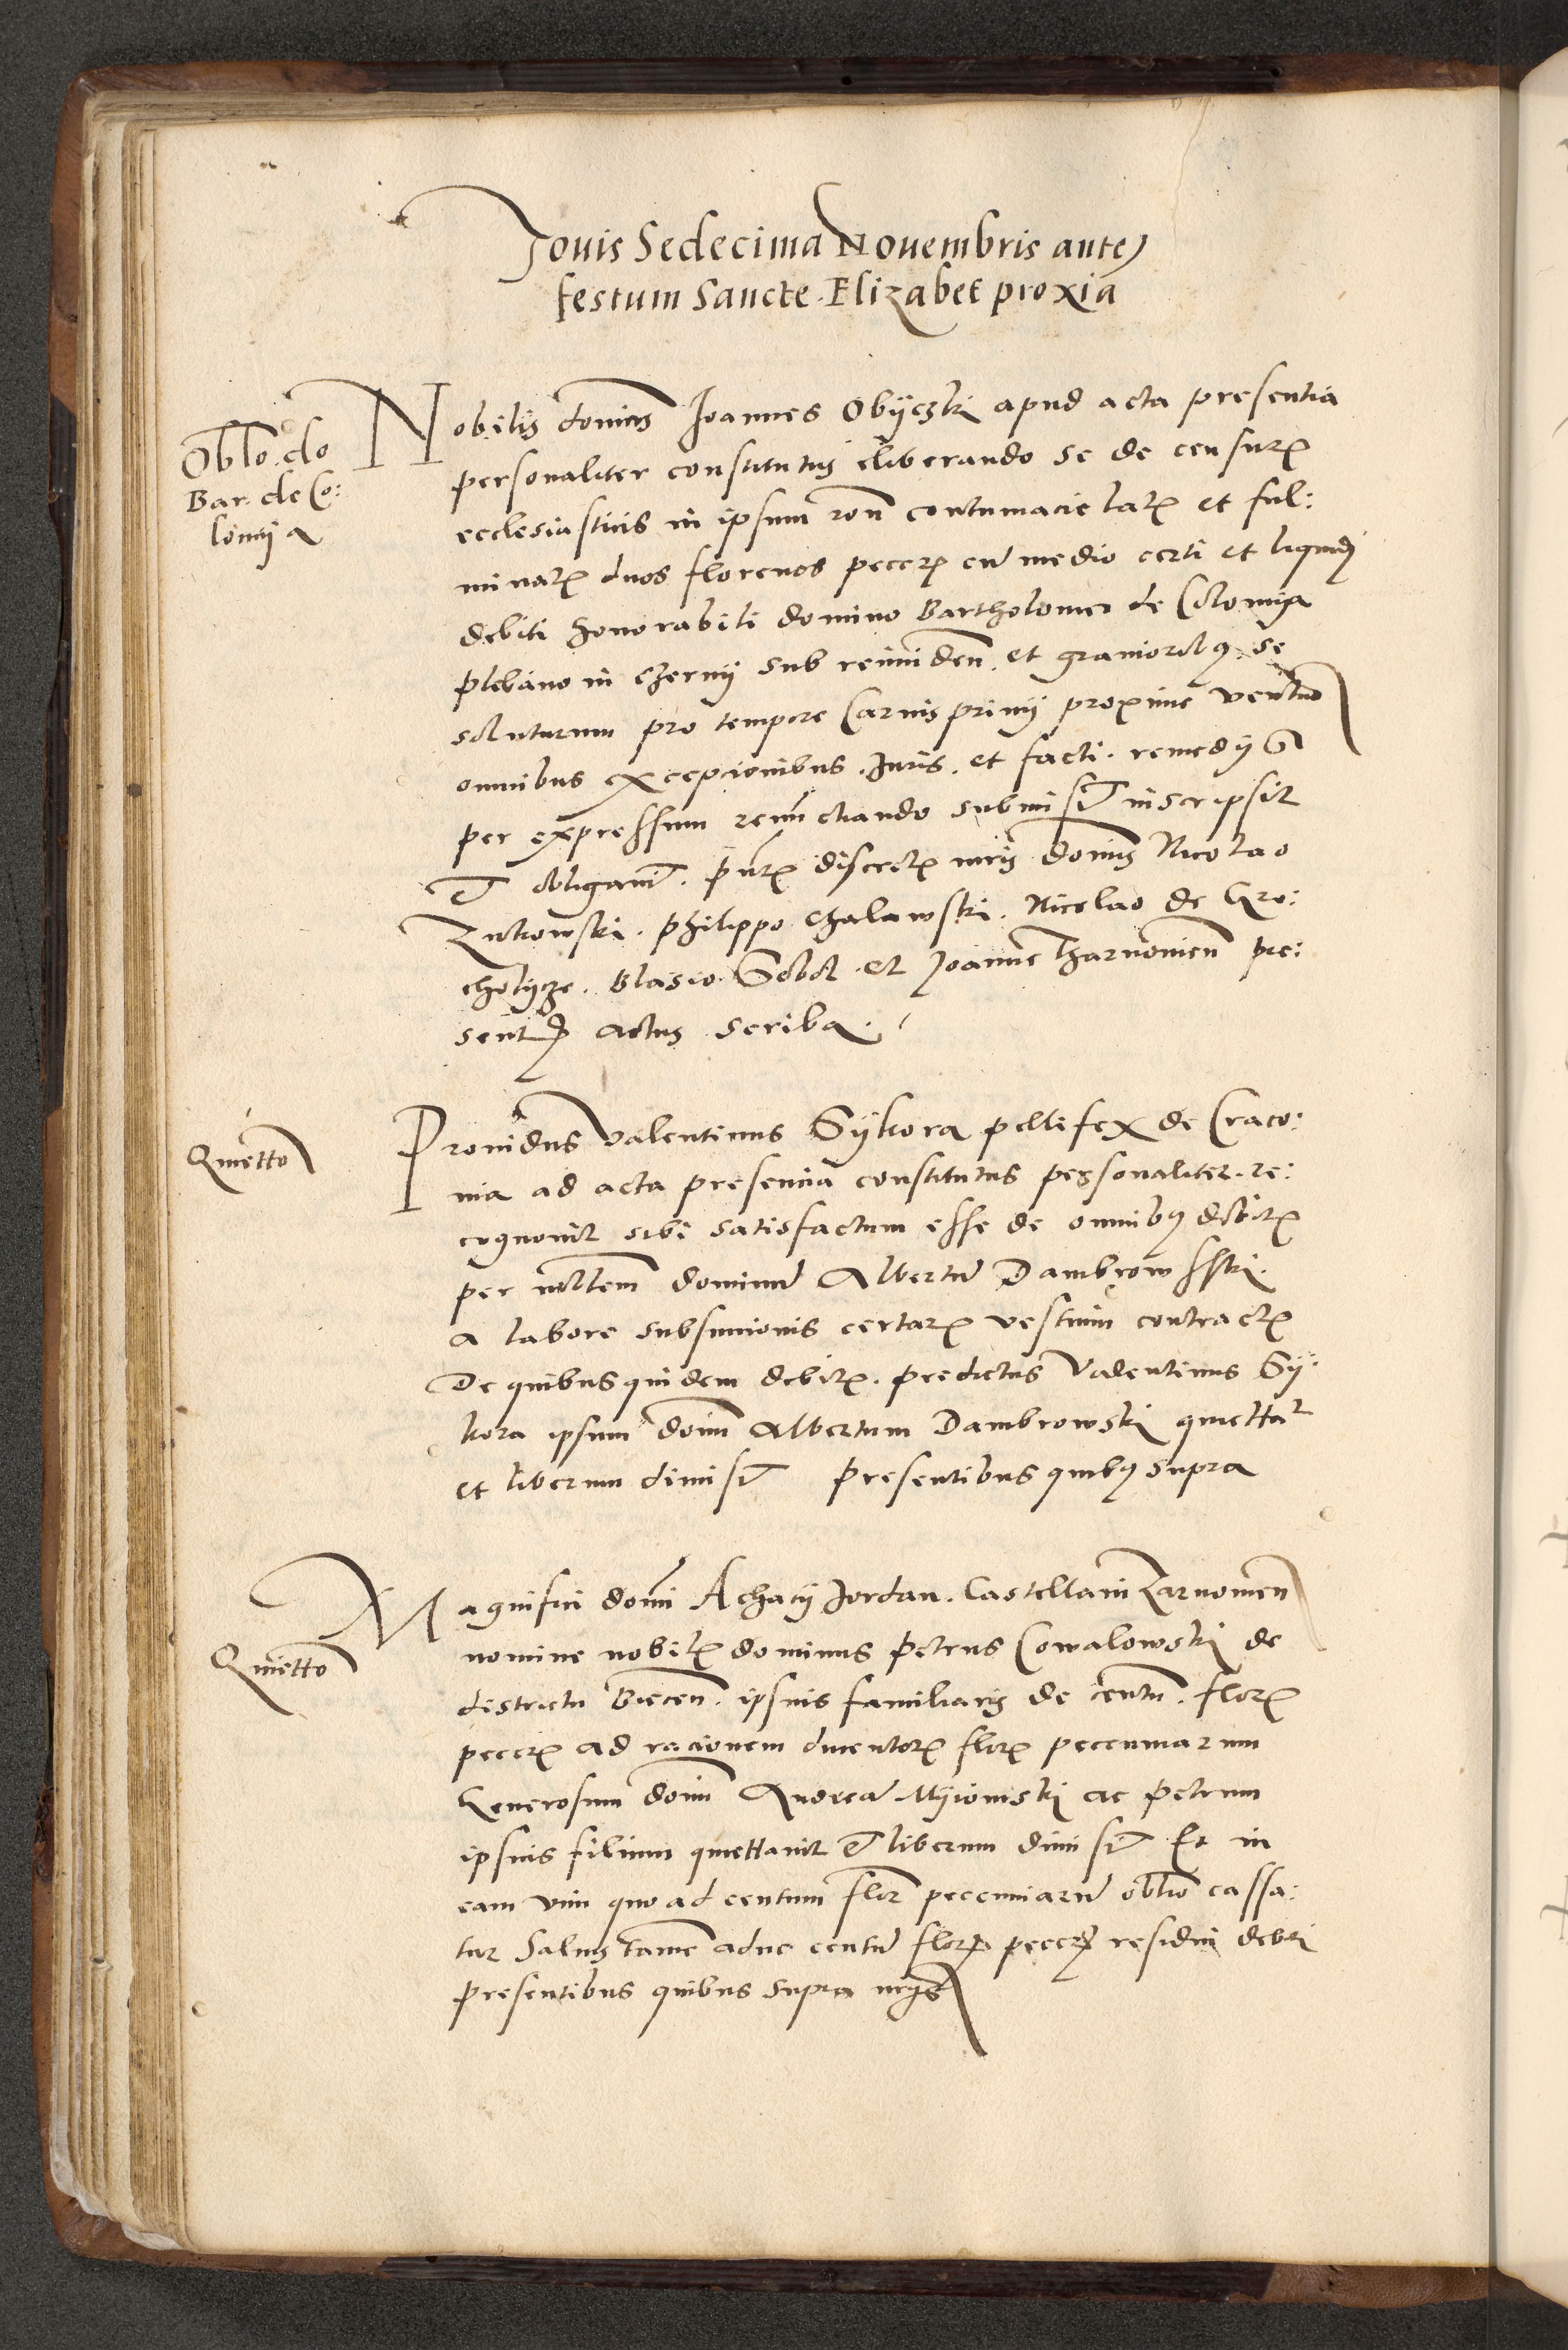 Jovis Sedecima Novembris ante
festum Sancte Elizabet proxia
Oblo. do
Bar. de Co:
lomij a
Nobilis domins Joannes Obyeczki apud acta presentia
personaliter constitutus eliberando se de censur
ecclesiasticis in ipsum ron contumacie lat et ful:
minat duos florenos peccer cu medio certi et liquidi
debiti honorabili domino Bartholomeo de Colomya
plebano in Czernij sub reinciden. et gravioribus se
soluturum pro tempore Carnisprivij proxime ventuo
omnibus excepcionibus. Juris. et facti. remedijs
per expressum renunctiando submisit inscripsit
et obligavit. pntx discretx viris domins Nicolao
Zukowski. Philippo Chalawski. Nicolao de Gro:
cholycze. Blasio Sobol et Joanne Tharnovien pre:
sent actus scriba.
Quietto
Providus Valentinus Sykora pellifex de Craco:
via ad acta presencia constitutus personaliter. re:
cognovit sibi satisfactum esse de omnibus debitx
per nobilem dominu Albertu Dambrowsski
a labore subsunionis certarx vestium contractx
De quibus quidem debitx. predictus Valentinus Sy:
kora ipsum doim Albertum Dambrowski quietta
et liberum dimisit presentibus quibus supra
Quietto
Magnifici domi Achacij Jordan. Castellani Zarnowien
nomine nobilx dominus Petrus Cowalowski de
districtu Biecen. ipsius familiaris de centu. florx
peccrx ad racionem ducentorx florx peccuniarum
Generosum doim Andrea Myiowski ac Petrum
ipsius filium quiettavit et liberum dimisit Et in
eam vim quo ad centum flor peccuniaru oblio cassa:
tur Salvis tame aduc centu florx peccrx residui debiti
presentibus quibus supra